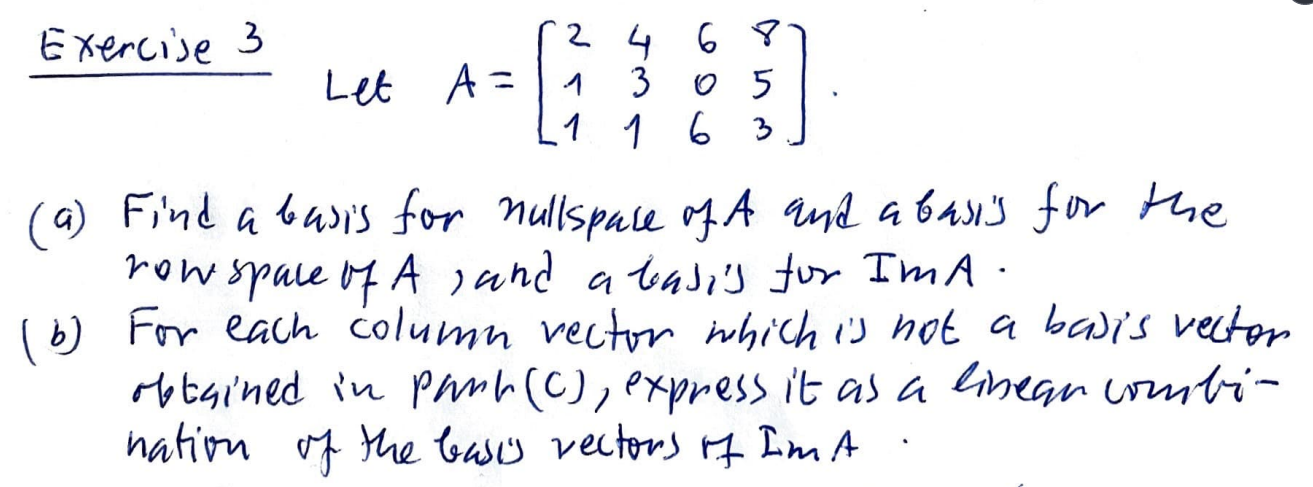 Exercise 3
Let A = [2 4 6 8
1 3 0 5
1 1 6 3].
(a) Find a basis for nullspace of A and a basis for the
row space of A, and a basis for Im A.
(b) For each column vector which is not a basis vector
obtained in part (c), express it as a linear combi-
nation of the basis vectors of Im A.